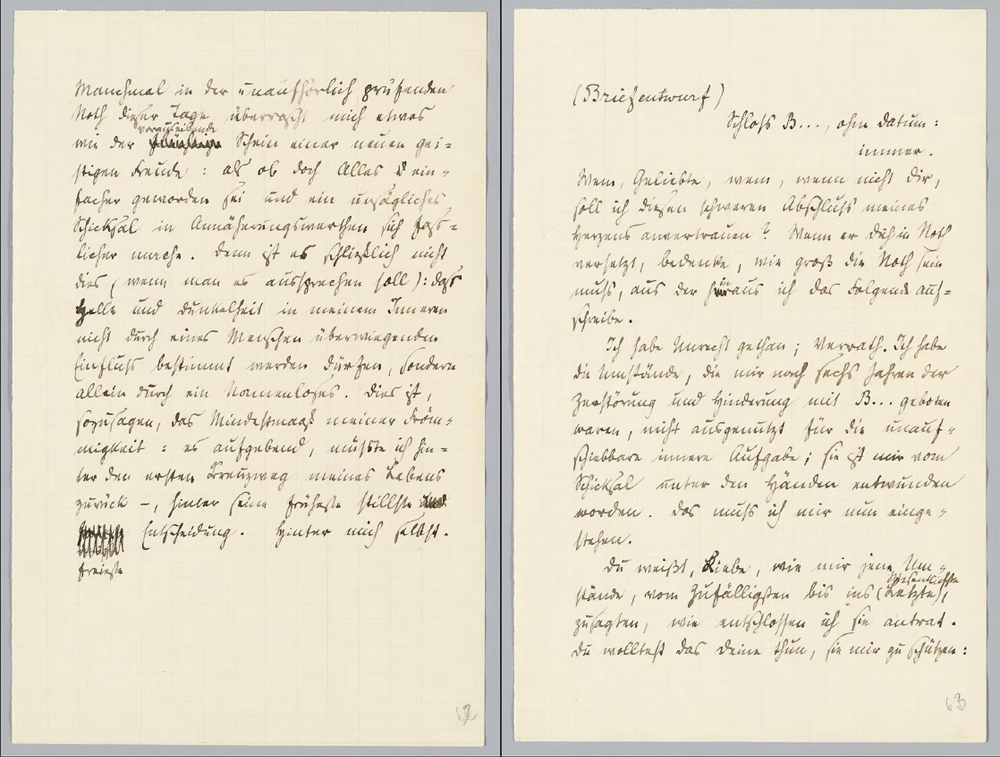 Manchmal in der unaufhörlich prüfenden
Noth dieser Tage überrascht mich etwas
vorauseilende
wie der Schein einer neuen gei=
stigen Freude : als ob doch Alles ein=
facher geworden sei und ein unsägliches
Schicksal in Annäherungswerthen sich fass=
licher mache. Denn ist es schließlich nicht
dies (wenn man es aussprechen soll) : daß
Helle und Dunkelheit in meinem Inneren
nicht durch eines Menschen überwiegenden
Einfluss bestimmt werden dürfen, sondern
allein durch ein Namenloses. Dies ist,
sozusagen, das Mindestmaaß meiner Fröm=
migkeit : es aufgebend, müsste ich hin=
ter den ersten Kreuzweg meines Lebens
zurück –, hinter seine früheste stillste und
Entscheidung. Hinter mich selbst.
freieste
62
(Briefentwurf)
Schloss B..., ohne Datum :
immer.
Wem, Geliebte, wem, wenn nicht Dir,
soll ich diesen schweren Abschluss meines
Herzens anvertrauen? Wenn er Dich in Noth
versetzt, bedenke, wie groß die Noth sein
muss, aus der heraus ich das Folgende auf=
schreibe.
Ich habe Unrecht gethan ; Verrath. Ich habe
die Umstände, die mir nach sechs Jahren der
Zerstörung und Hinderung mit B... geboten
waren, nicht ausgenutzt für die unauf=
schiebbare innere Aufgabe ; sie ist mir vom
Schicksal unter den Händen entwunden
worden. Das muss ich mir nun einge=
stehen.
Du weißt, Liebe, wie mir jene Um=
Wesentlichste
stände, vom Zufälligsten bis ins (Letzte),
zusagten, wie entschlossen ich sie antrat.
Du wolltest das Deine thun, sie mir zu schützen :
63